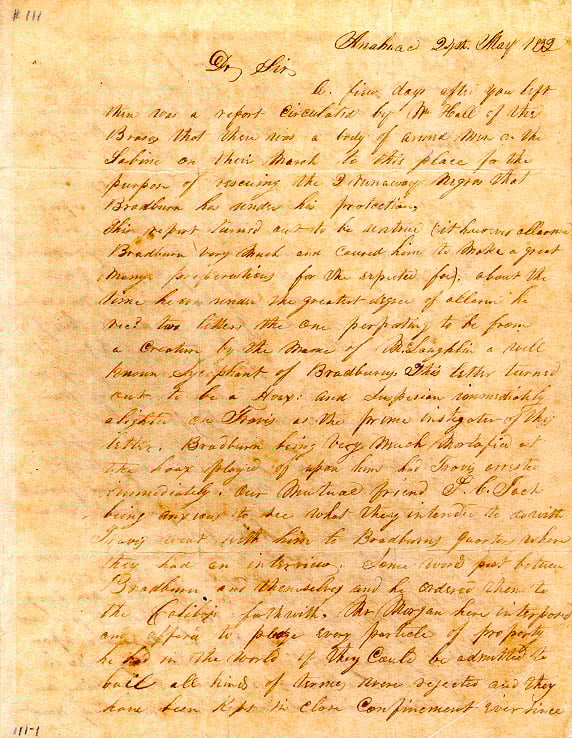 # 111
Anahuac 24th. May 1832
Dr, Sir,
A. few days after you left
there was a report circulated by Wm Hall of the
Brasos that there was a body of armed men on the
Sabine on their March to this place for the
purpose of rescuing the 2 runaway Negros that
Bradburn has under his protection,
This report turned out to be untrue (it however allarmed
Bradburn very much and caused him to make a great
many preperations for the expected foe). about the
time he was under the greatest degree of allarm he
recd. two letters the one perporting to be from
a Creature by the name of McLaughlin a well
known Sycophant of Bradburns This letter turned
out to be a Hoax: and Suspision immediately
alighted on Travis as the prime instigator of this
letter. Bradburn being very much Mortafied at
the hoax played of upon him had Travis arrested
immediately. Our Mutual friend P. C. Jack
being anxious to see what they intended to do with
Travis went with him to Bradburns quarters where
they had an interview. Some words past between
Bradburn and themselves and he ordered them to
the forthwith. Mr Morgan here interposed
and offered to pledge every particle of property
he had in the world if they could be admitted to
bail all kinds of terms were rejected and they
have been kept in close confinement ever since
111-1